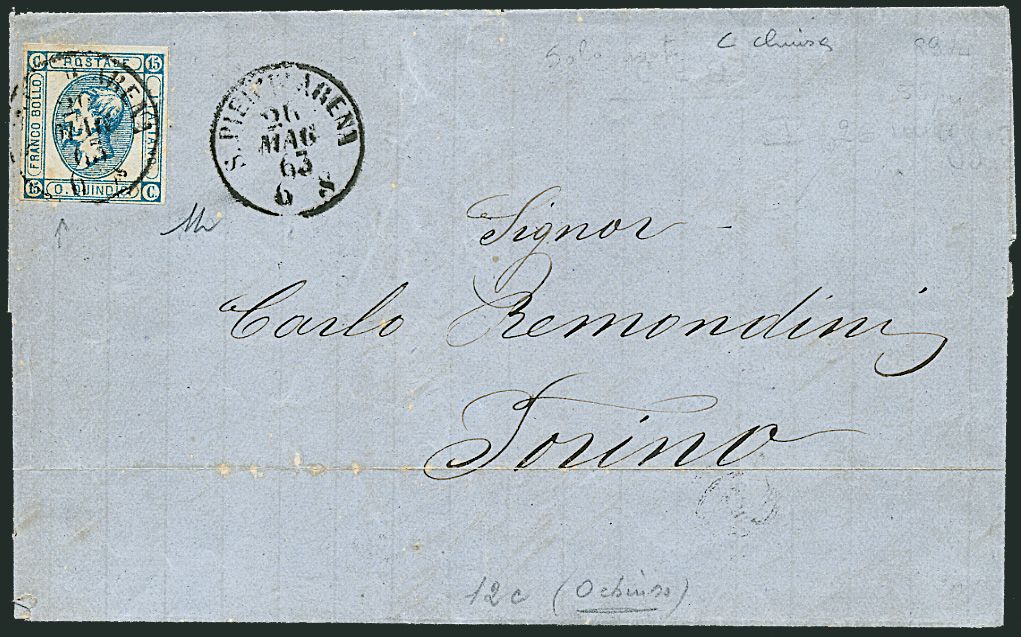 C. POSTALE 15
FRANCO BOLLO
ITALIANO
15 C. QUINDICI C.
S. PIER D'ARENA
26
MAG
63
6 S
C chiusa
Signor
Carlo Remondini
Torino
12c (O chiuso)